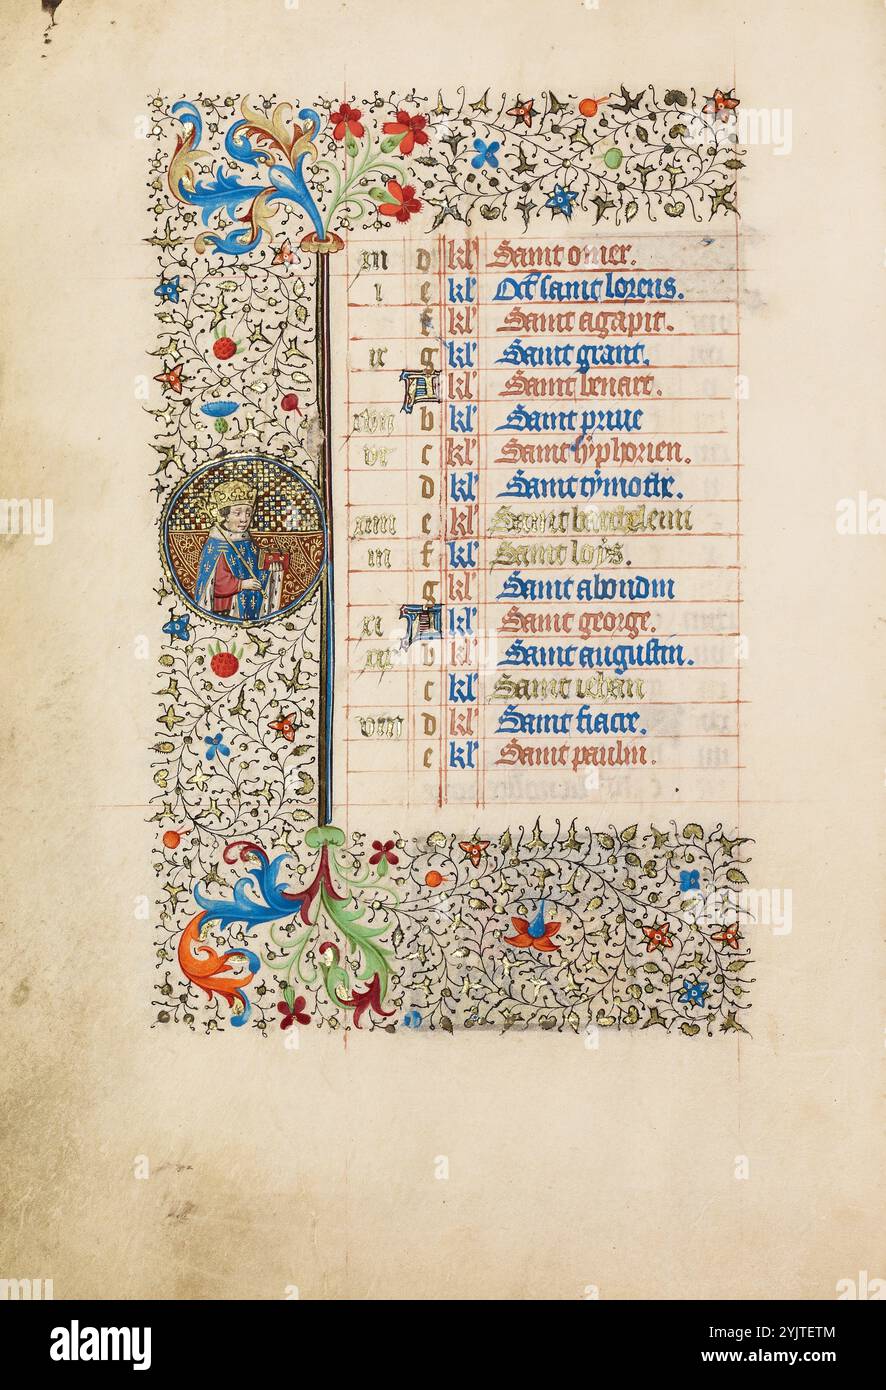 d kl' Saint omer.
i e kl' Oct' saint lorens.
f kl' Saint agapit.
ix g kl' Saint grant.
A kl' Saint benart.
xvii b kl' Saint priue
vi c kl' Saint syphorien.
d kl' Saint tymothe.
xiiii e kl' Saint barthelemi
iii f kl' Saint loys.
g kl' Saint abondin
xi A kl' Saint george.
b kl' Saint augustin.
c kl' Saint iehan
viii d kl' Saint fiacre.
e kl' Saint paulin.
alamy
Image ID: 2YJTETM
www.alamy.com